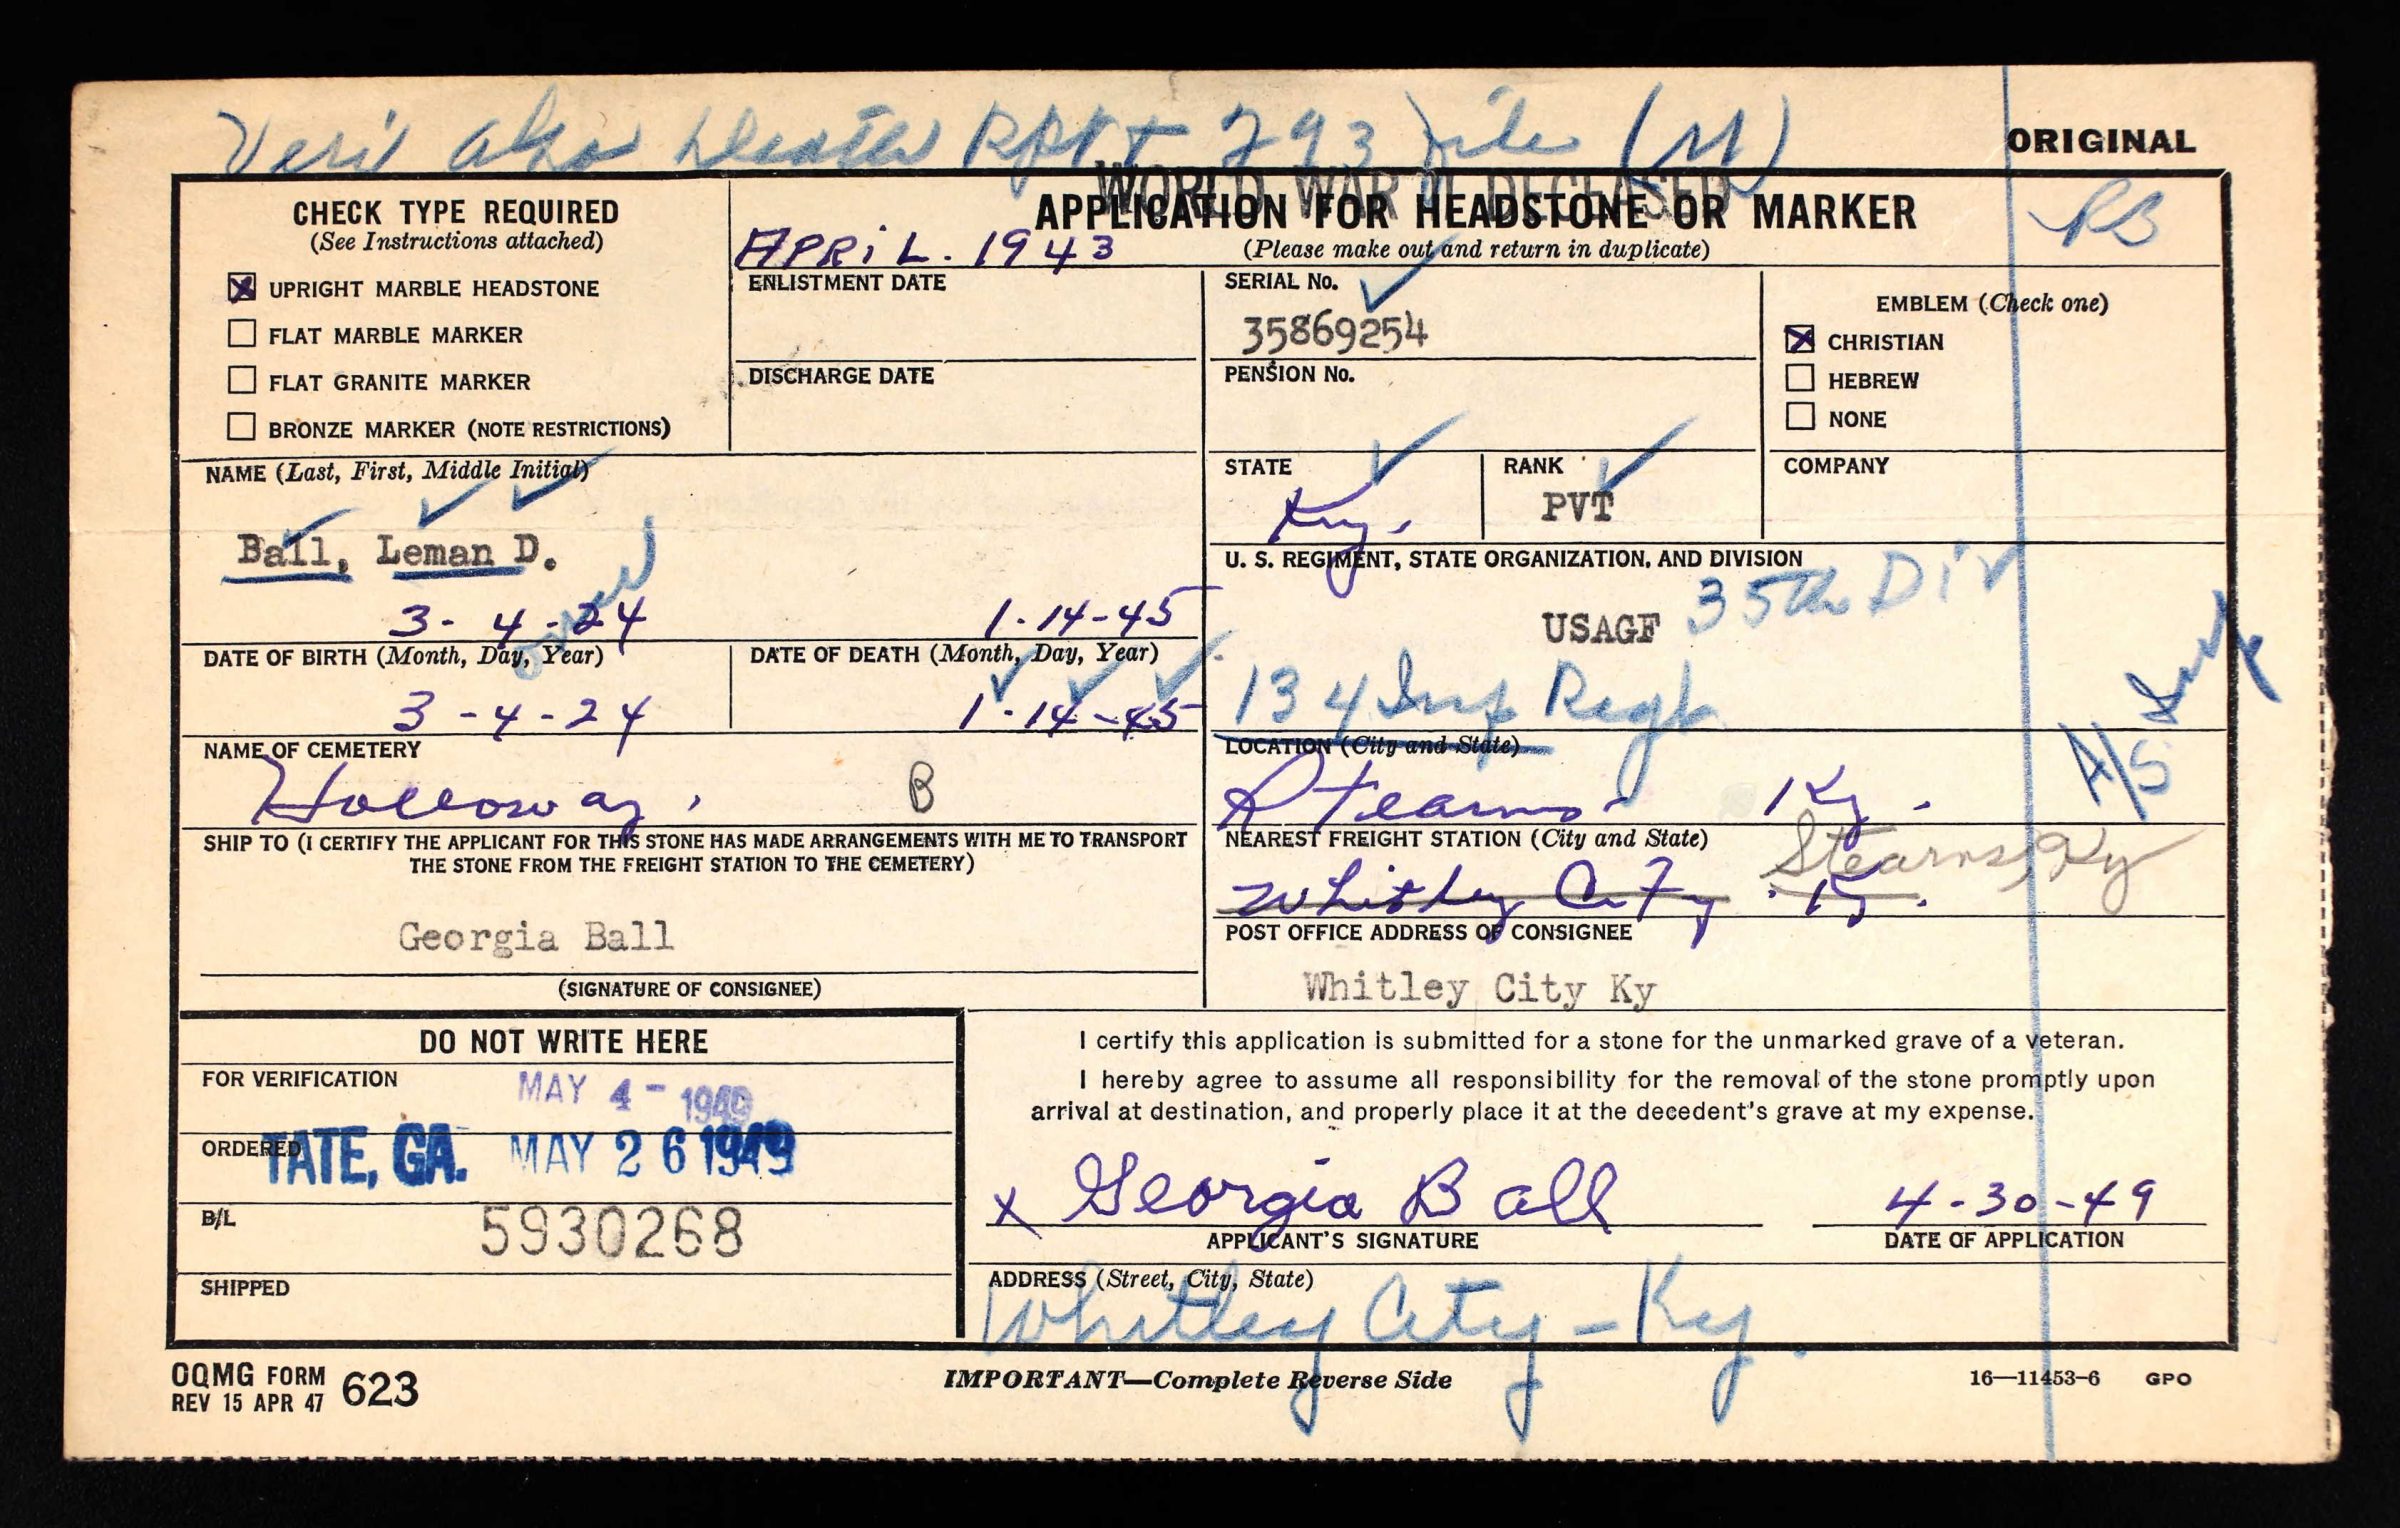 Veri also Death Rpt + 293 file (M)
ORIGINAL
WORLD WAR II DECEASED
CHECK TYPE REQUIRED
(See Instructions attached)
UPRIGHT MARBLE HEADSTONE
FLAT MARBLE MARKER
FLAT GRANITE MARKER
BRONZE MARKER (NOTE RESTRICTIONS)
APPLICATION FOR HEADSTONE OR MARKER
(Please make out and return in duplicate)
RB
APRiL. 1943
ENLISTMENT DATE
DISCHARGE DATE
SERIAL No.
35869254
PENSION No.
EMBLEM (Check one)
CHRISTIAN
HEBREW
NONE
NAME (Last, First, Middle Initial)
Ball, Leman D.
STATE
Ky.
RANK
PVT
COMPANY
U. S. REGIMENT, STATE ORGANIZATION, AND DIVISION
USAGF 35th Div
134 Inf Regt
3-4-24
1-14-45
DATE OF BIRTH (Month, Day, Year)
3-4-24
DATE OF DEATH (Month, Day, Year)
1-14-45
NAME OF CEMETERY
Holloway. B
LOCATION (City and State)
Stearns. Ky.
A/S
SHIP TO (I CERTIFY THE APPLICANT FOR THIS STONE HAS MADE ARRANGEMENTS WITH ME TO TRANSPORT
THE STONE FROM THE FREIGHT STATION TO THE CEMETERY)
Georgia Ball
(SIGNATURE OF CONSIGNEE)
NEAREST FREIGHT STATION (City and State)
Stearns, Ky
Whitley City. Ky.
POST OFFICE ADDRESS OF CONSIGNEE
Whitley City Ky
DO NOT WRITE HERE
FOR VERIFICATION
MAY 4 - 1949
ORDERED
TATE, GA. MAY 26 1949
B/L
5930268
SHIPPED
I certify this application is submitted for a stone for the unmarked grave of a veteran.
I hereby agree to assume all responsibility for the removal of the stone promptly upon
arrival at destination, and properly place it at the decedent's grave at my expense.
x Georgia Ball
4-30-49
APPLICANT'S SIGNATURE
DATE OF APPLICATION
ADDRESS (Street, City, State)
Whitley City - Ky
OQMG FORM
REV 15 APR 47 623
IMPORTANT—Complete Reverse Side
16—11453-6 GPO